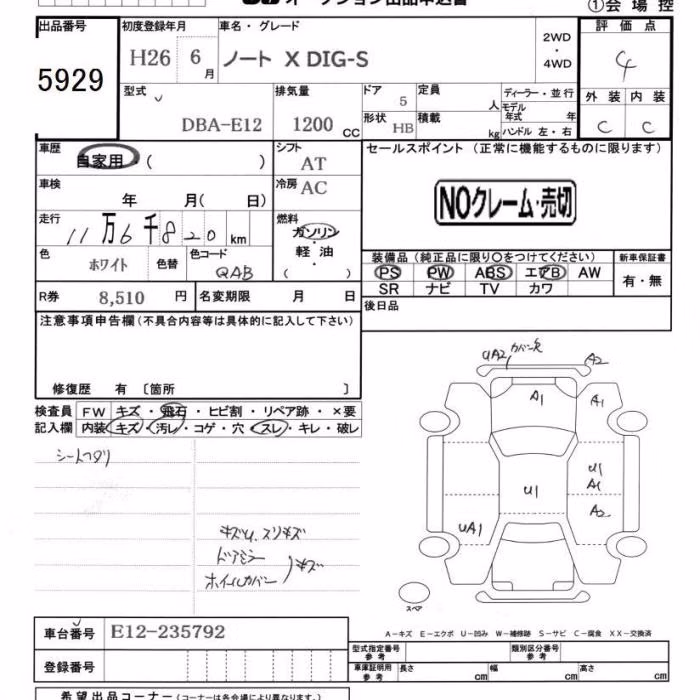 オークション出品申込書
①会 場 控
出品番号
5929
初度登録年月
H26 6 月
車名・グレード
ノート X DIG-S
2WD
・
4WD
評 価 点
4
外 装 内 装
C C
型式
DBA-E12
排気量
1200 CC
ドア
5
形状 HB
定員
人
積載
kg
ディーラー・並 行
モデル
年式 年
ハンドル 左・右
車歴
自家用・( )
シフト
AT
セールスポイント (正常に機能するものに限ります)
NOクレーム・売切
車検
年 月( 日)
冷房
AC
走行
11 万 6 千 8 2 0 km
燃料
ガソリン
軽 油
( )
色
ホワイト
色替
色コード
QAB
装備品 (純正品に限り○をつけてください)
PS PW ABS エアB AW
SR ナビ TV カワ
新車保証書
有・無
R券 8,510 円
名変期限 月 日
後日品
注意事項申告欄 (不具合内容等は具体的に記入して下さい)
修復歴 有 〔箇所 〕
検査員
記入欄
FW キズ・飛石・ヒビ割・リペア跡・×要
内装 キズ・汚レ・コゲ・穴・スレ・キレ・破レ
シートヘタリ
キズU、スリキズ
ドアミラー
ホイルカバー
キズ
UA2 カバー欠
A2
A1
A1
U1
A1
U1
A2
UA1
スペア
A-キズ E-エクボ U-凹み W-補修跡 S-サビ C-腐食 XX-交換済
車台番号
E12-235792
登録番号
型式指定番号
参 考
類別区分番号
参 考
車庫証明用
参 考
長さ cm
幅 cm
高さ cm
希望出品コーナー (コーナーは各会場により異なります。)